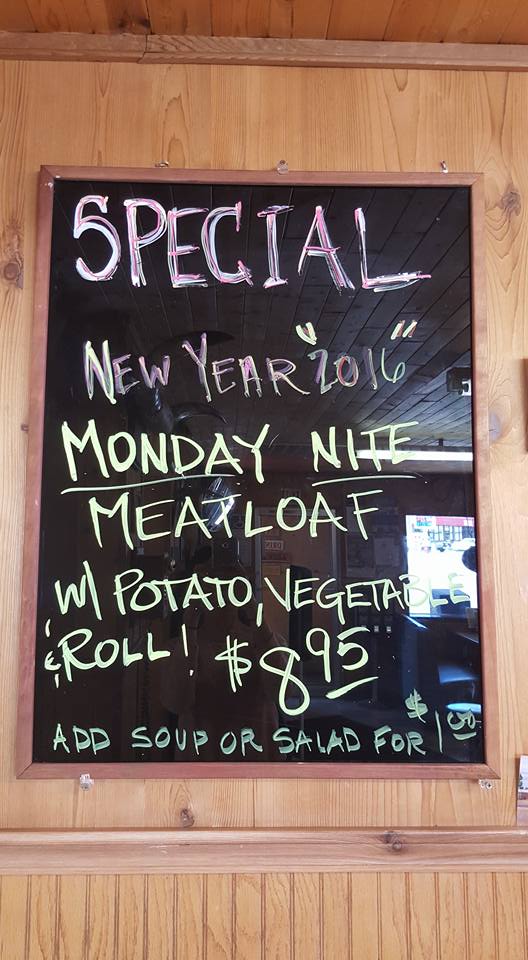 SPECIAL
NEW YEAR "2016"
MONDAY NITE
MEATLOAF
W/ POTATO, VEGETABLE
& ROLL! $8.95
ADD SOUP OR SALAD FOR $1.50